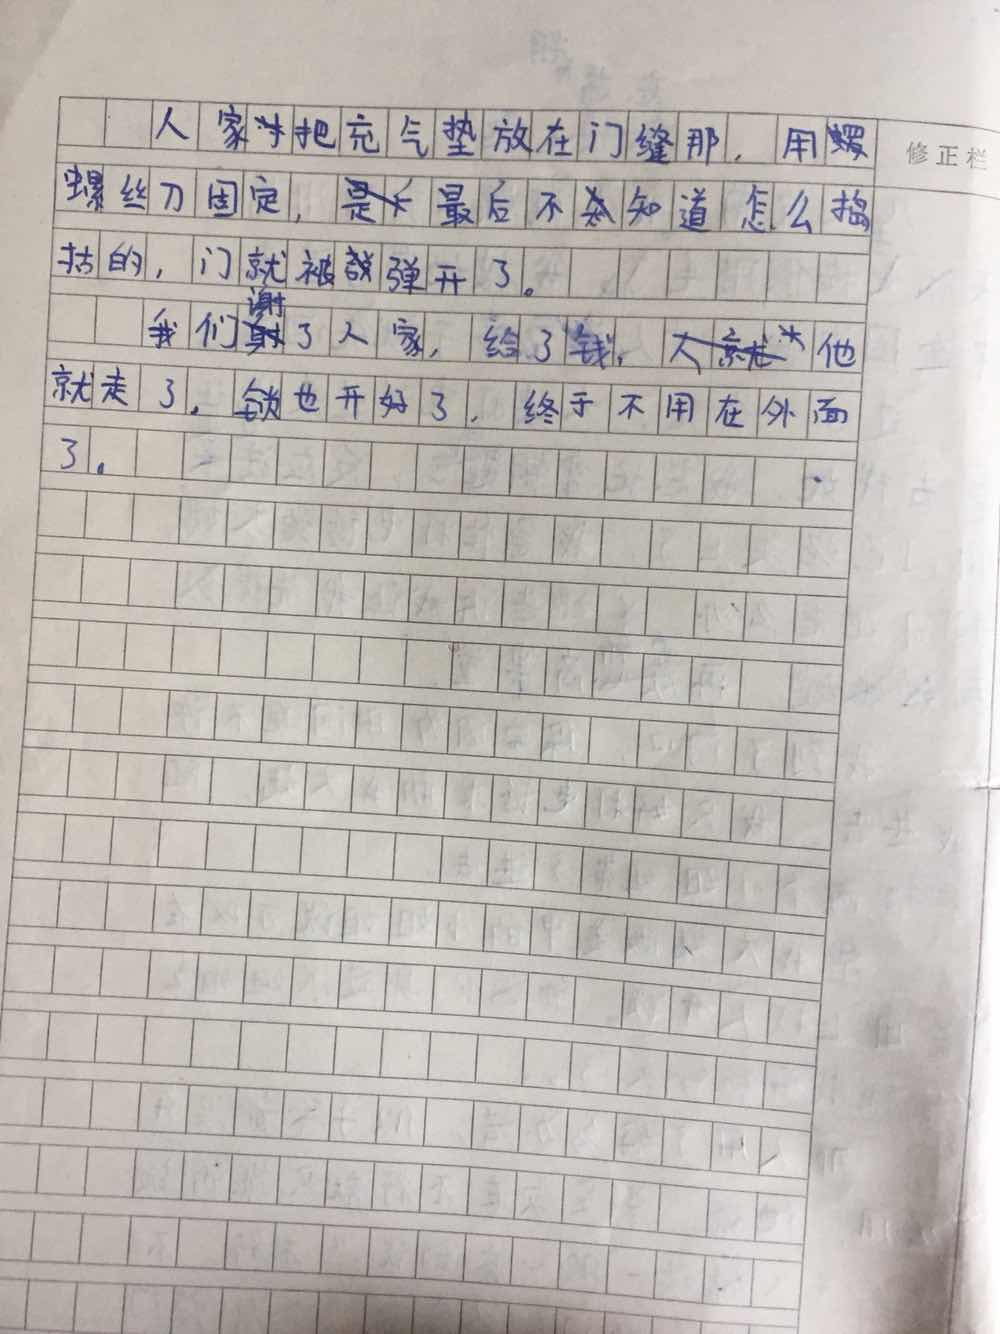 人家把充气垫放在门缝那，用
螺丝刀固定，最后不知道怎么捣
拮的，门就被弹开了。
我们谢了人家，给了钱，他
就走了。锁也开好了，终于不用在外面
了。
修正栏